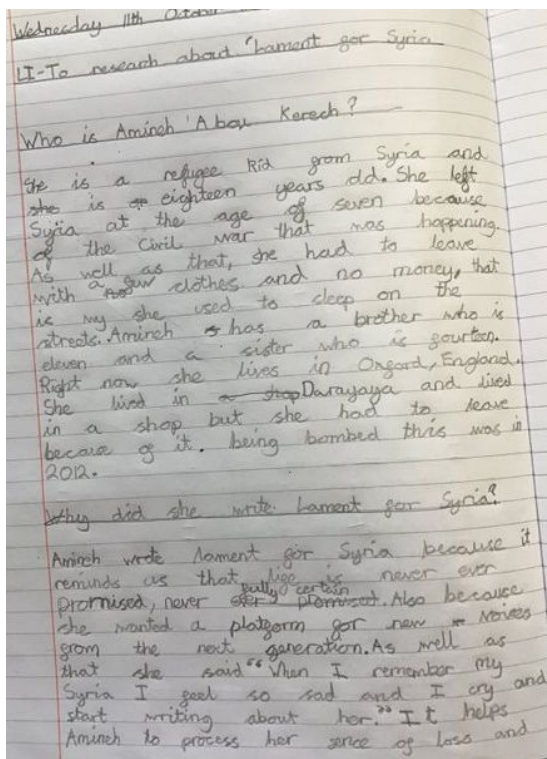 Wednesday 11th October
LI-To research about 'Lament for Syria
Who is Amineh Abou Kerech?
She is a refugee Kid from Syria and
she is eighteen years old. She left
Syria at the age of seven because
of the Civil war that was happening.
As well as that, she had to leave
with a few clothes and no money, that
is my she used to sleep on the
streets. Amineh has a brother who is
eleven and a sister who is fourteen.
Right now she lives in Oxford, England.
She lived in a shop Darayaya and lived
in a shop but she had to leave
becaus of it. being bombed this was in
2012.
Why did she write Lament for Syria?
Amineh wrote lament for Syria because it
reminds us that life is never ever
promised, never fully certain promised. Also because
she wanted a platform for new Noices
from the next generation. As well as
that she said "When I remember my
Syria I feel so sad and I cry and
start writing about her." It helps
Amineh to process her sence of loss and